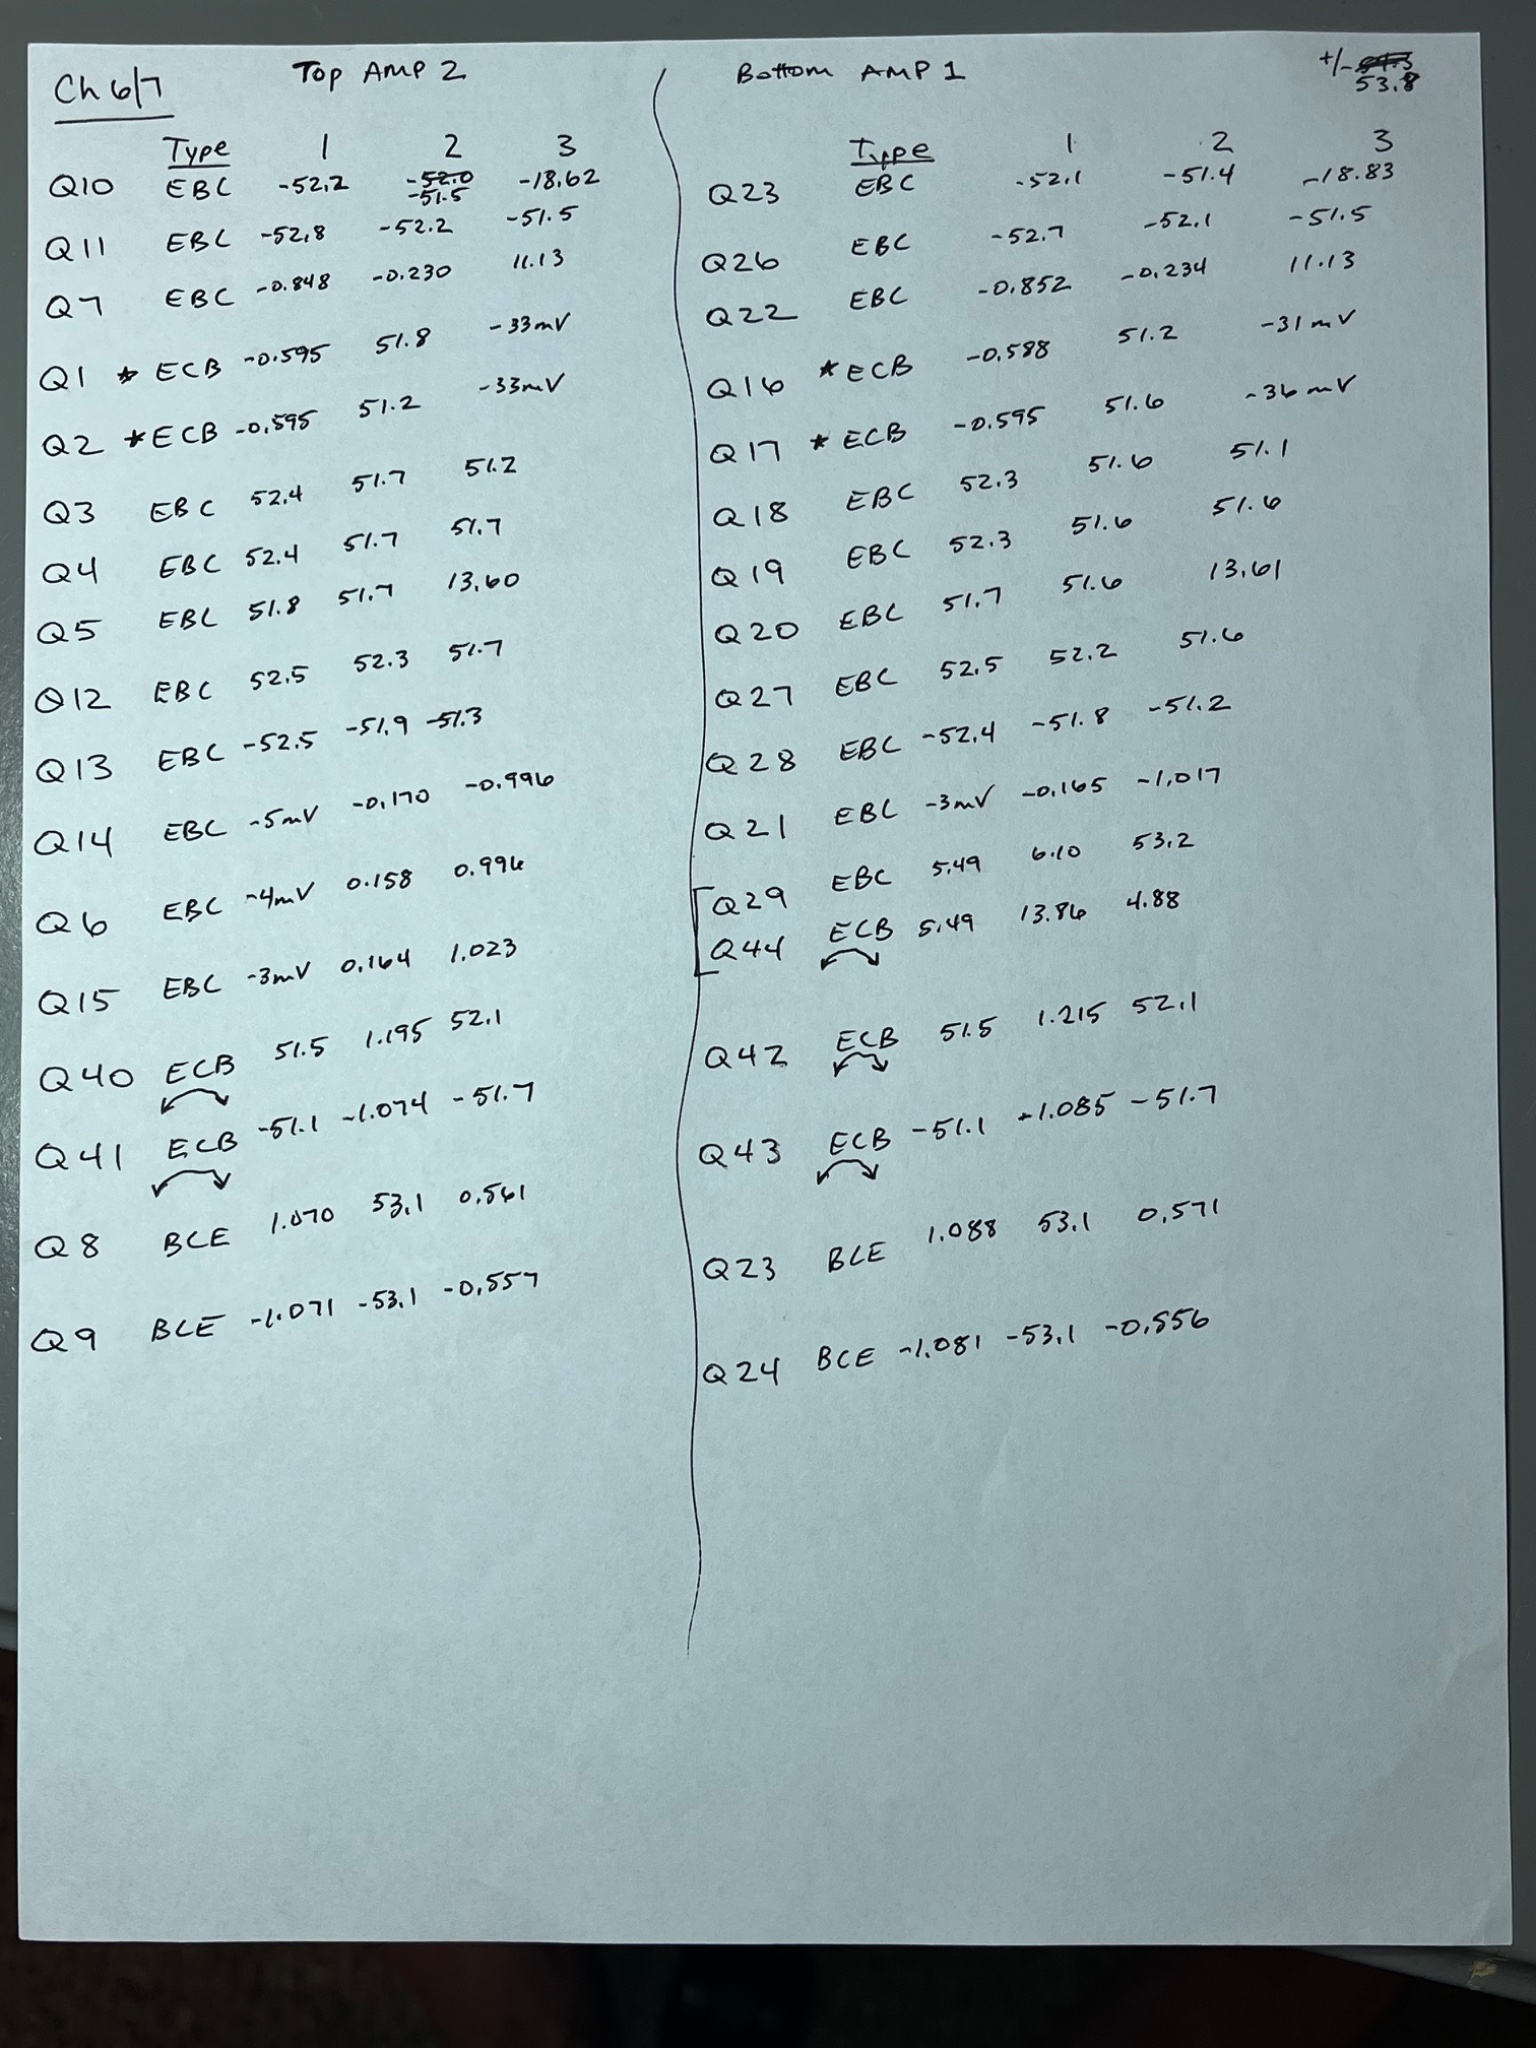 Ch 6/7 Top AMP 2
Type 1 2 3
Q10 EBC -52.2 -52.0 -18.62
-51.5
Q11 EBC -52.8 -52.2 -51.5
Q7 EBC -0.848 -0.230 11.13
Q1 * ECB -0.595 51.8 -33mV
Q2 * ECB -0.595 51.2 -33mV
Q3 EBC 52.4 51.7 51.2
Q4 EBC 52.4 51.7 51.7
Q5 EBC 51.8 51.7 13.60
Q12 EBC 52.5 52.3 51.7
Q13 EBC -52.5 -51.9 -51.3
Q14 EBC -5mV -0.170 -0.996
Q6 EBC -4mV 0.158 0.996
Q15 EBC -3mV 0.164 1.023
Q40 ECB 51.5 1.195 52.1
Q41 ECB -51.1 -1.074 -51.7
Q8 BCE 1.070 53.1 0.561
Q9 BCE -1.071 -53.1 -0.557
Bottom AMP 1 +/-
53.8
Type 1 2 3
Q23 EBC -52.1 -51.4 -18.83
Q26 EBC -52.7 -52.1 -51.5
Q22 EBC -0.852 -0.234 11.13
Q16 * ECB -0.588 51.2 -31mV
Q17 * ECB -0.595 51.6 -36mV
Q18 EBC 52.3 51.6 51.1
Q19 EBC 52.3 51.6 51.6
Q20 EBC 51.7 51.6 13.61
Q27 EBC 52.5 52.2 51.6
Q28 EBC -52.4 -51.8 -51.2
Q21 EBC -3mV -0.165 -1.017
Q29 EBC 5.49 6.10 53.2
Q44 ECB 5.49 13.86 4.88
Q42 ECB 51.5 1.215 52.1
Q43 ECB -51.1 -1.085 -51.7
Q23 BCE 1.088 53.1 0.571
Q24 BCE -1.081 -53.1 -0.556